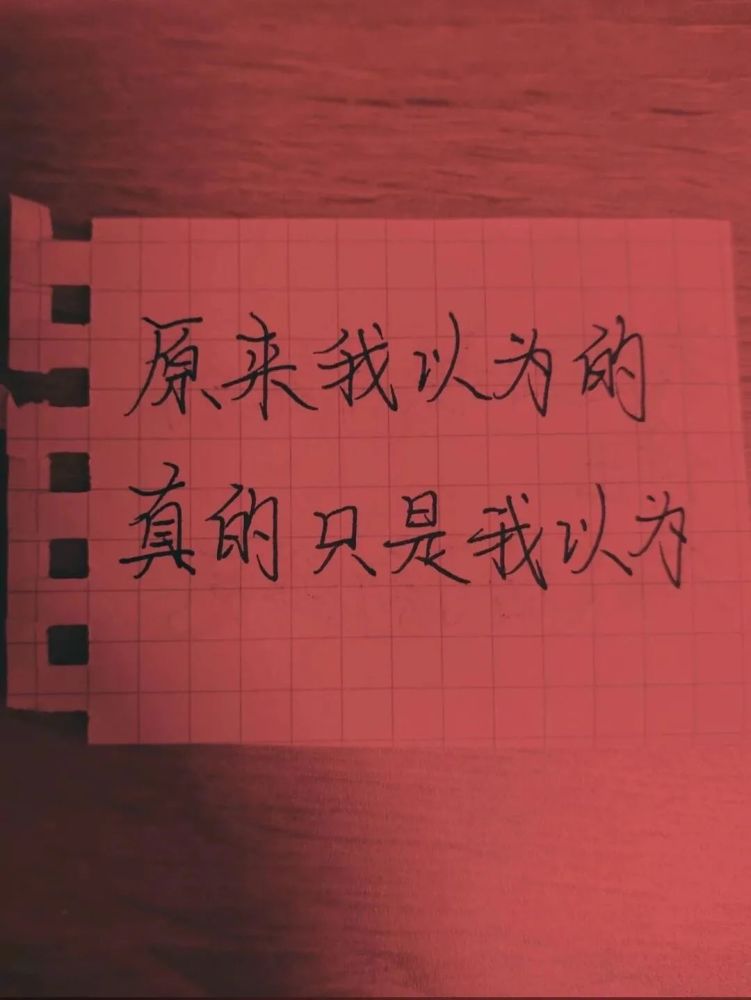 原来我以为的
真的只是我以为